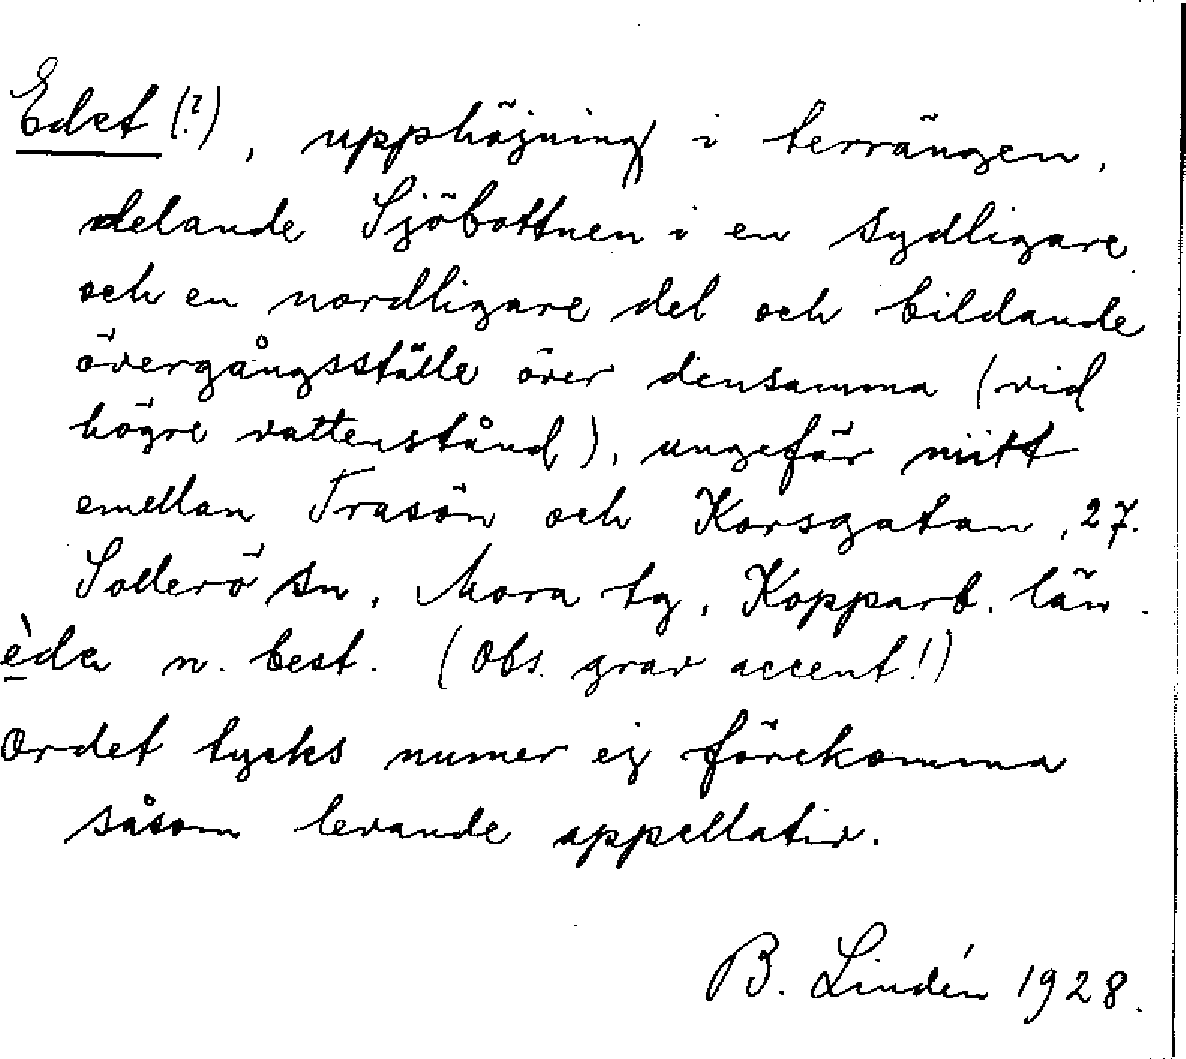 Edet (?), upphöjning i terrängen,
delande Sjöbottnen i en sydligare
och en nordligare del och bildande
övergångsställe över densamma (vid
högre vattenstånd), ungefär mitt
emellan Trasön och Korsgatan, 27.
Sollerö sn, Mora tg, Kopparb. län.
èda n. best. (Obs. grav accent!)
Ordet tycks numer ej förekomma
såsom levande appellativ.
B. Lindén 1928.